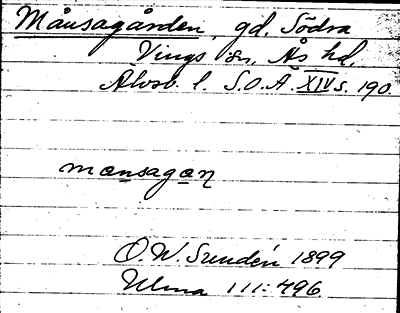 Månsagården, gd. Södra
Vings sn, Ås hd,
Älvsb. l. S.O.A. XIV s. 190.
mɑnsagɑn
O. W. Sundén 1899
Ulma 111:496